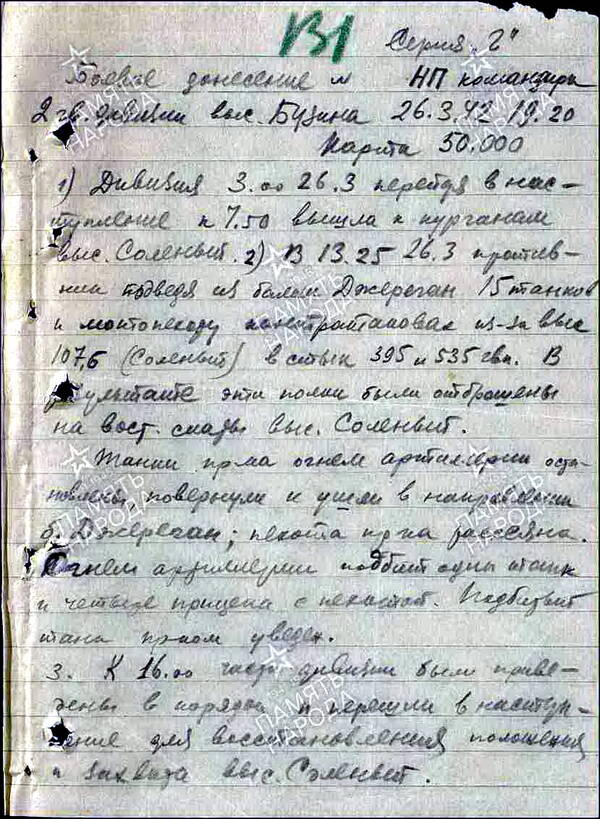 В1 Серия "Г"
Боевое донесение № НП командира
2 гв. дивизии выс. Бузина 26.3.42 19.20
Карта 50.000
1) Дивизия 3.00 26.3 перейдя в нас-
тупление к 7.50 вышла к курганам
выс. Соленый. 2) В 13.25 26.3 против-
ник подведя из балки Джереган 15 танков
и мотопехоту контратаковал из-за выс
107,6 (Соленый) в стык 395 и 535 гвп. В
результате эти полки были отброшены
на вост. скаты выс. Соленый.
Танки пр-ка огнем артиллерии оста-
новлены, повернули и ушли в направлении
б. Джереган; пехота пр-ка рассеяна.
Огнем артиллерии подбит один танк
и четыре прицепа с пехотой. Подбитый
танк пр-ком уведен.
3. К 16.00 части дивизии были приве-
дены в порядок и перешли в наступ-
ление для восстановления положения
и захвата выс. Соленый.
ПАМЯТЬ
НАРОДА